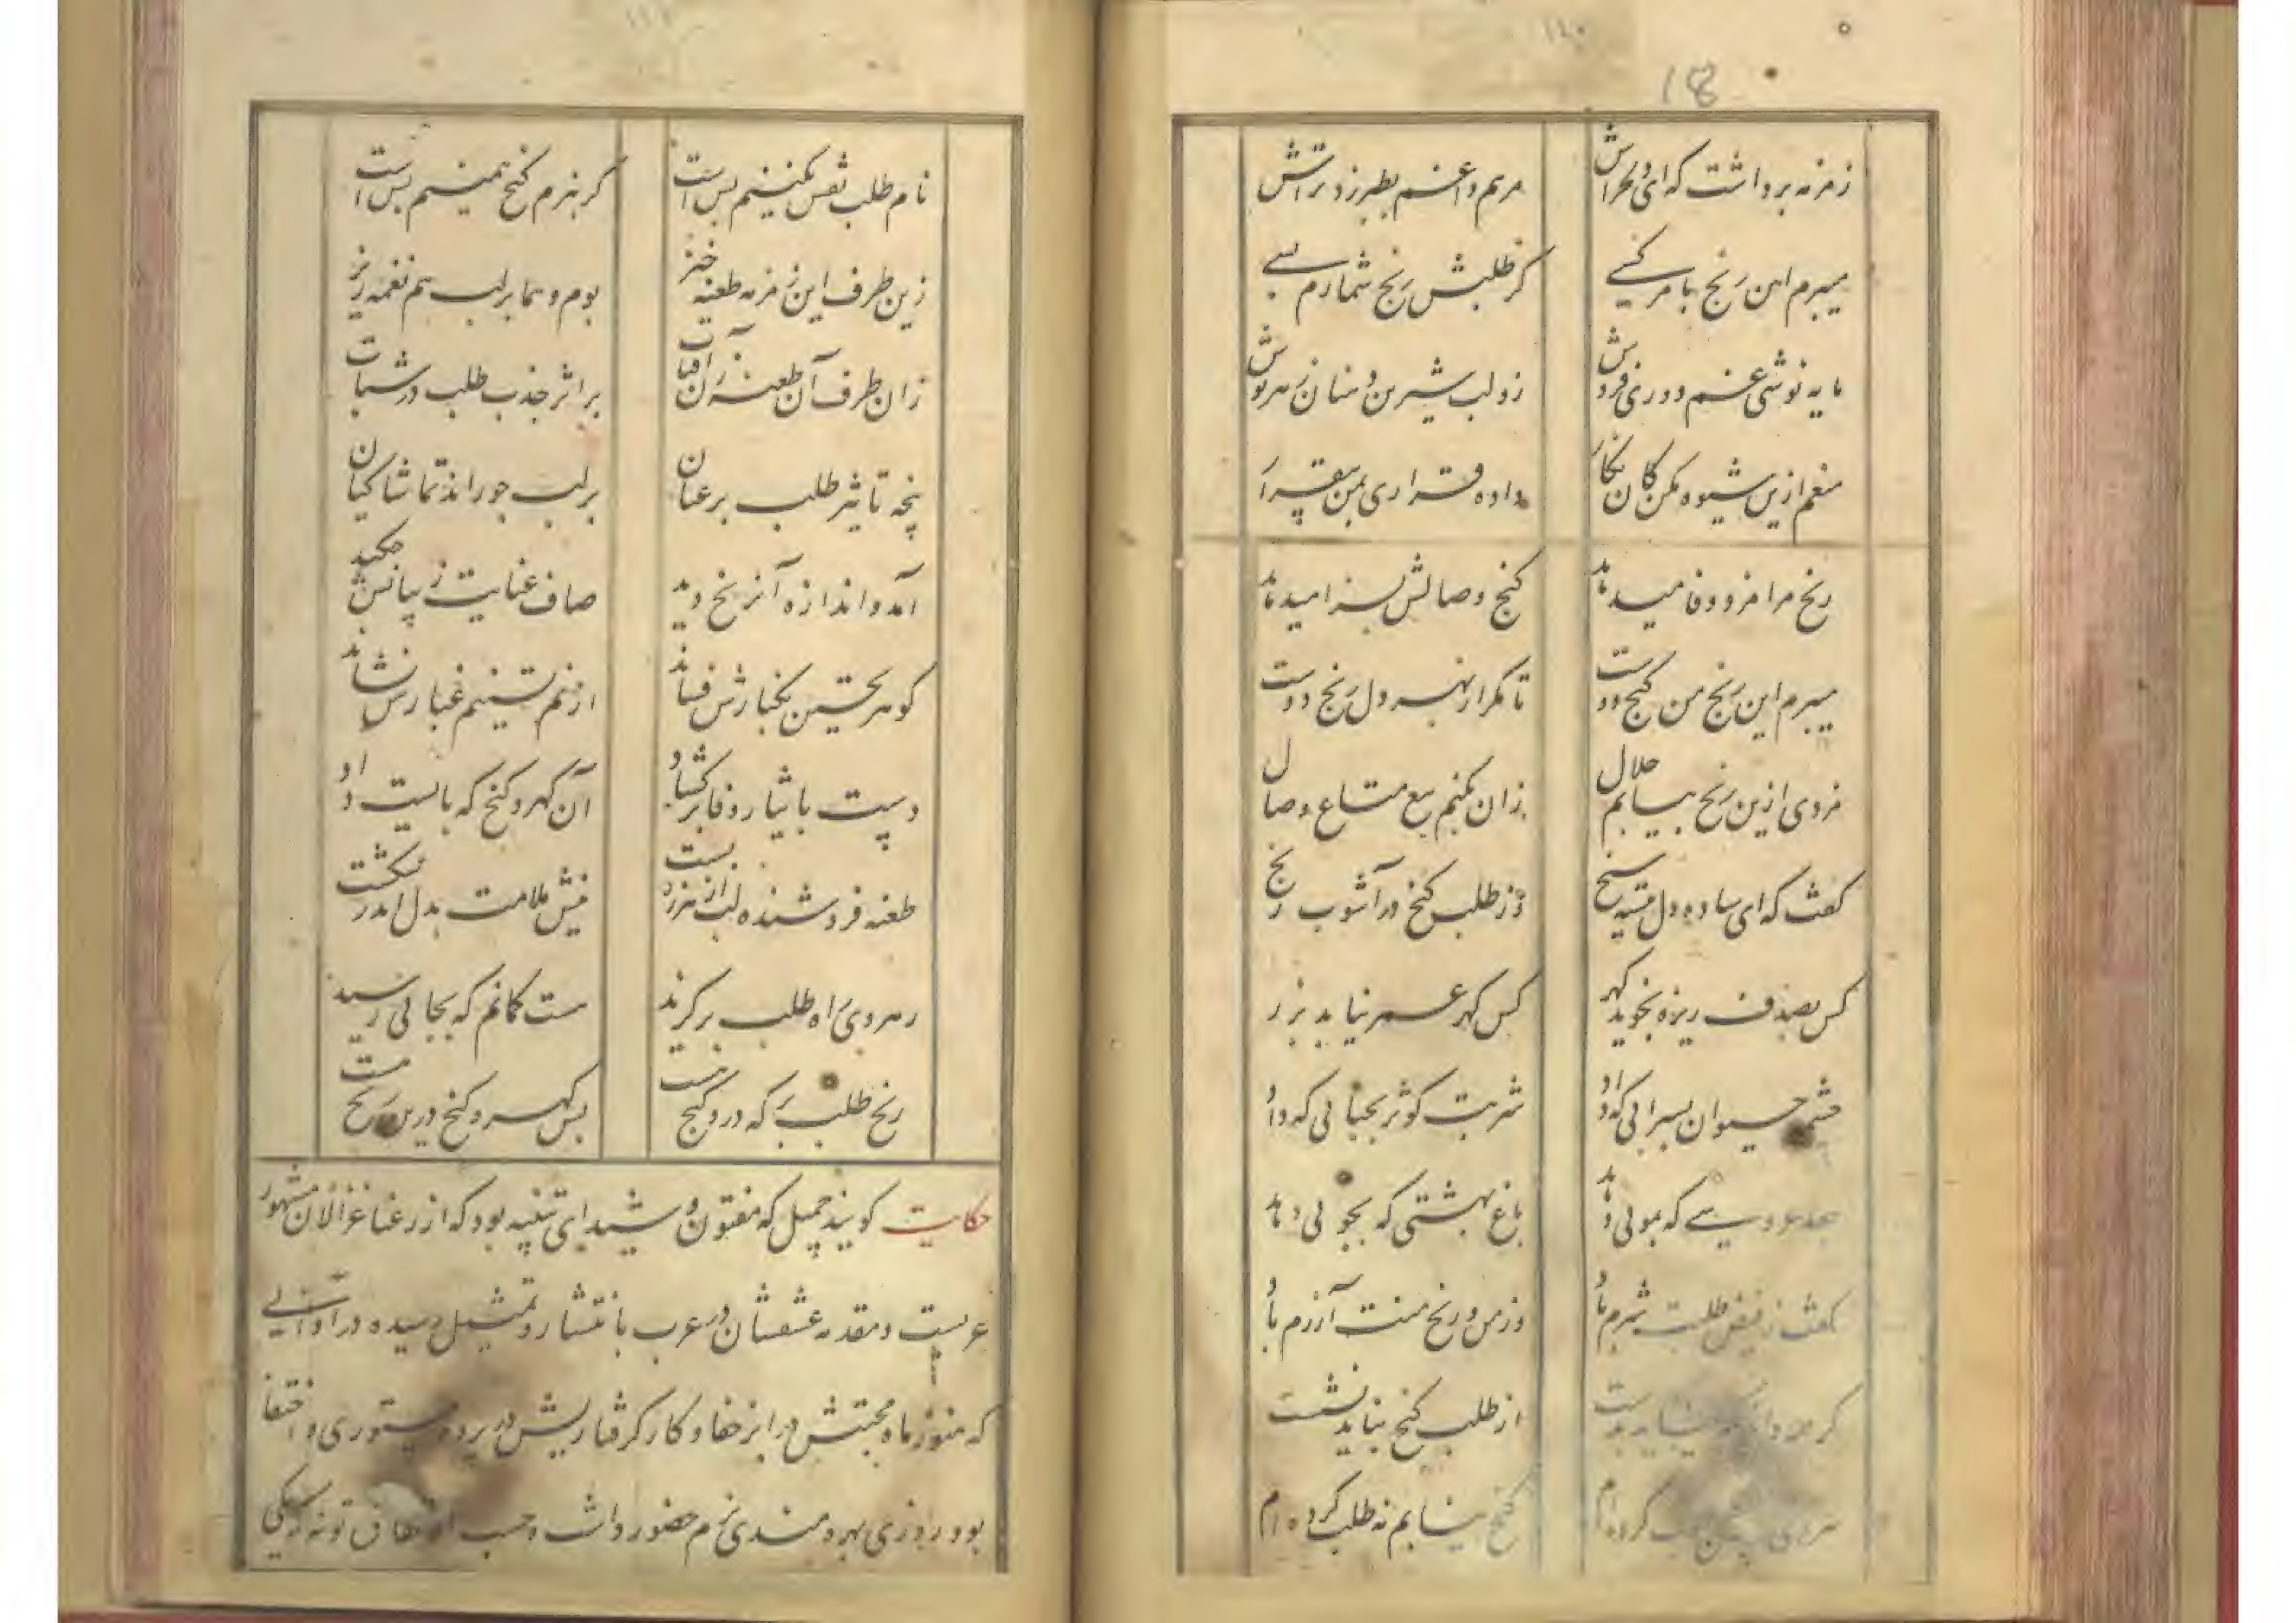 زمزمه برداشت که ای دلخراش مرهم داغم بطبرزد تراش
میبرم این رنج بامر کسے کز طلبش رنج شمارم بسے
مایه نوشی غم دوری فروش زو لب شیرین و سنان زهرنوش
منعم ازین شیوه مکن کان نکار داده قراری بمن بیقرار
رنج مرا مزد وفا میدهد کنج وصالش بسزا میدهد
میبرم این رنج من کنج دوست تا مکر از بهر دل رنج دوست
مزدی ازین رنج بیابم حلال زان بکنم بیع متاع وصال
کفت که ای ساده دل سنج وز طلب کنج در آشوب رنج
کس بصدف ریزه نجوید کهر کس کهر عمر نیابد بزر
چشمه حیوان بسرابی که داد شربت کوثر بحبابی که داد
که بموئی دهد باغ بهشتی که بجوئی دهد
کفت ز فیض طلبت شرم باد وز من و رنج منت آزرم باد
کر از طلب کنج نباید نشست
کرده‌ام کنج نیابم نه طلب کرده‌ام
نام طلب نقش نکینم بس است کر نبرم کنج همینم بس است
زین طرف این زمزمه طعنه خیز بوم و هما بر لب هم نغمه ریز
زان طرف آن طعنه زن آفتاب بر اثر جذب طلب در شتاب
پنجه تاثیر طلب بر عنان بر لب جو راند تماشاکنان
آمد و اندازه آن رنج دید صاف عنایت ز بیانش مکید
کوهر تحسین بکنارش فشاند از نم تسنیم غبارش نشاند
دست بایثار وفا بر کشاد آن کهر و کنج که بایست داد
طعنه فروشنده لب از هرزه بست نیش ملامت بدل اندر شکست
رهروی راه طلب بر کزید هست کمانم که بجائی رسید
رنج طلب بر که در و کنج هست بس کهر و کنج درین رنج هست
حکایت کویند جمیل که مفتون و شیدای بثینه بود که از رعنا غزالان مشهور
عربست و مقدمه عشقشان در عرب بانتشار و تمثیل رسیده در اوانی
که هنوز ماه محبتش در ابر خفا و کار کرفتاریش در پرده مستوری و اختفا
بود روزی بهره مندی بزم حضور داشت حسب الاتفاق